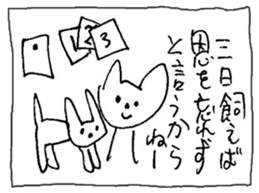 三日飼えば
恩を忘れず
と言うから
ねー
2
3